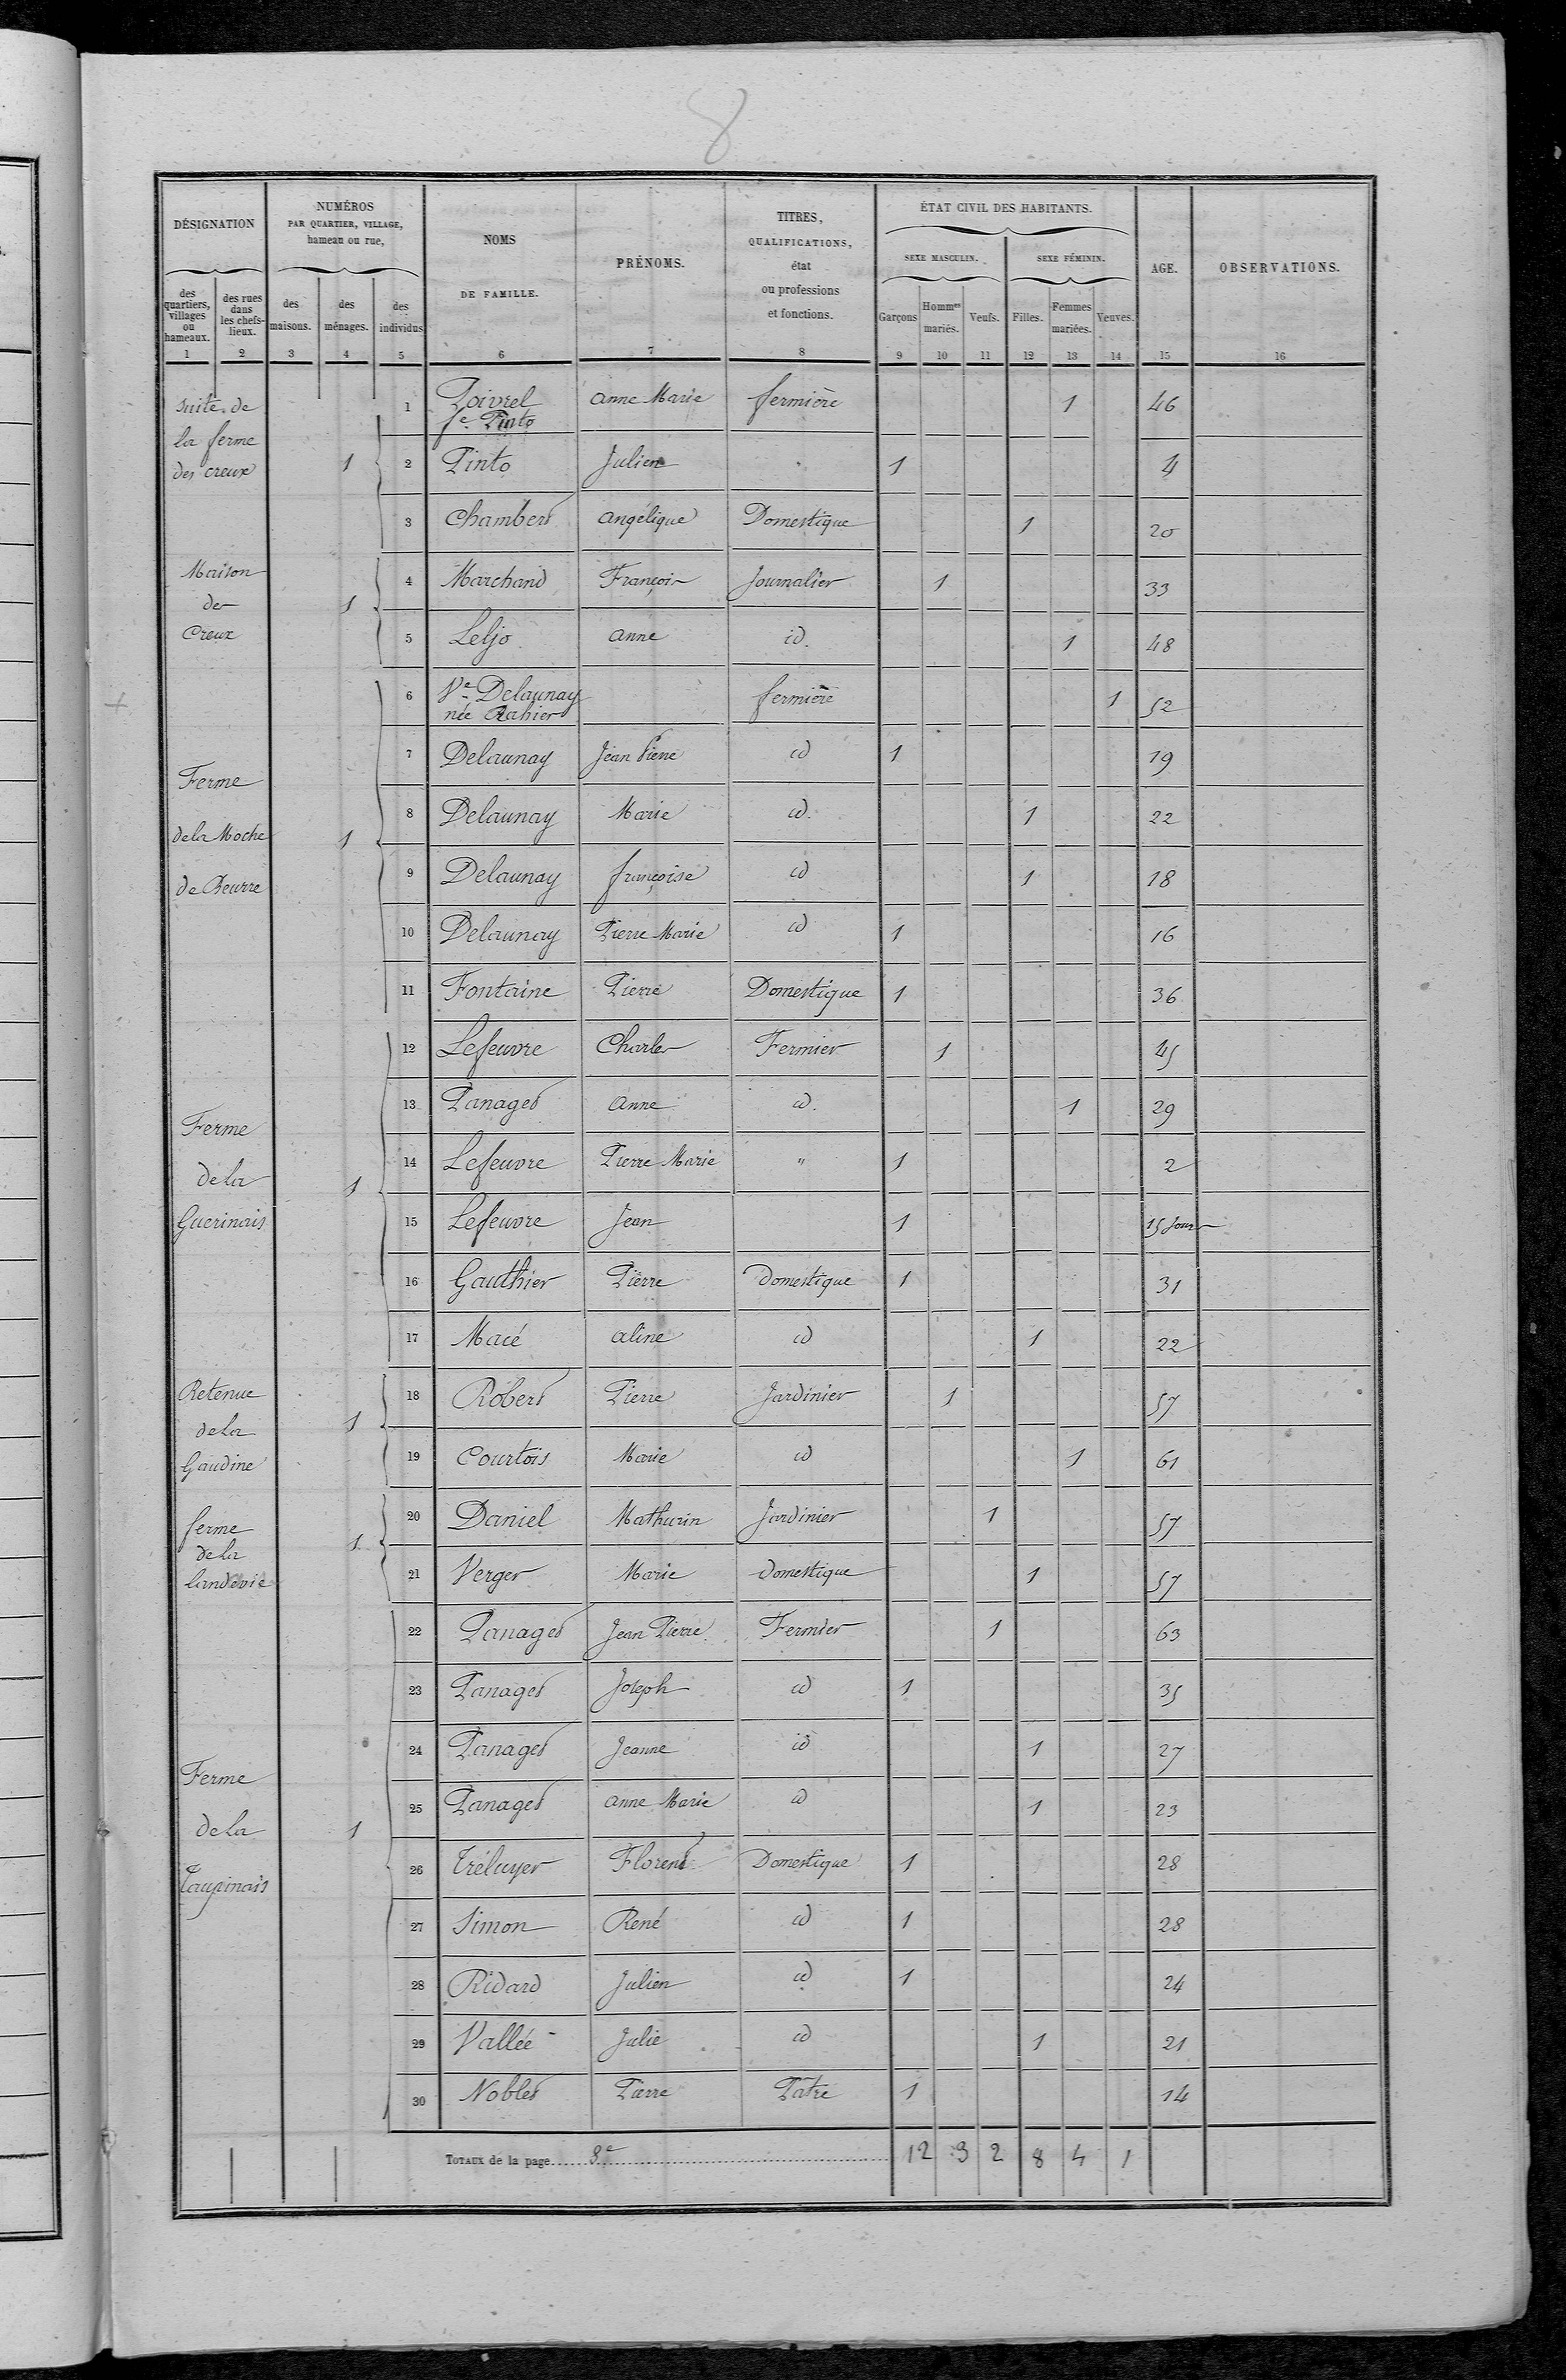 8
DÉSIGNATION
NUMÉROS
PAR QUARTIER, VILLAGE,
hameau ou rue,
NOMS
DE FAMILLE.
PRÉNOMS.
TITRES,
QUALIFICATIONS,
état
ou professions
et fonctions.
ÉTAT CIVIL DES HABITANTS.
SEXE MASCULIN. SEXE FÉMININ.
AGE.
OBSERVATIONS.
des quartiers, villages ou hameaux.
des rues dans les chefs-lieux.
des maisons.
des ménages.
des individus
Garçons Hommes mariés. Veufs. Filles. Femmes mariées. Veuves.
1 2 3 4 5 6 7 8 9 10 11 12 13 14 15 16
Suite de
la ferme
des creux 1
1 Poivrel fe Pinto Anne Marie fermière 1 46
2 Pinto Julien 1 4
3 Chambert Angélique Domestique 1 20
Maison
de
Creux 1
4 Marchand François Journalier 1 33
5 Leljo anne id. 1 48
Ferme
de la Moche
de Beurre 1
6 Ve Delaunay née Rahier fermière 1 52
7 Delaunay Jean Pierre id 1 19
8 Delaunay Marie id. 1 22
9 Delaunay françoise id 1 18
10 Delaunay Pierre Marie id 1 16
11 Fontaine Pierre Domestique 1 36
Ferme
de la
Guerinais 1
12 Lefeuvre Charles Fermier 1 45
13 Panaget anne id. 1 29
14 Lefeuvre Pierre Marie " 1 2
15 Lefeuvre Jean 1 15 jours
16 Gauthier Pierre Domestique 1 31
17 Macé aline id 1 22
Retenue
de la
Gaudine 1
18 Robert Pierre Jardinier 1 57
19 Courtois Marie id 1 61
ferme
de la
1
20 Daniel Mathurin Jardinier 1 57
21 Verger Marie domestique 1 57
Ferme
de la
Taupinais 1
22 Panaget Jean Pierre Fermier 1 63
23 Panaget Joseph id 1 35
24 Panaget Jeanne id 1 27
25 Panaget anne Marie id 1 23
26 Tréluyer Florent Domestique 1 28
27 Simon René id 1 28
28 Ridard Julien id 1 24
29 Vallée Julie id 1 21
30 Noblet Pierre Pâtre 1 14
TOTAUX de la page 8e 12 3 2 8 4 1